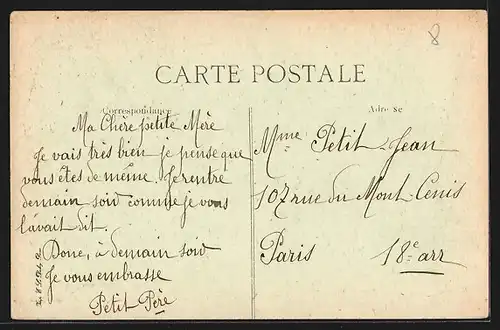 8
CARTE POSTALE
Correspondance
Adresse
Ma Chère petite Mère
Je vais très bien je pense que
vous êtes de même. Je rentre
demain soir comme je vous
l'avait dit.
Donc, à demain soir
Je vous embrasse
Petit Père
Mme Petit Jean
107 rue du Mont Cenis
Paris 18e arr